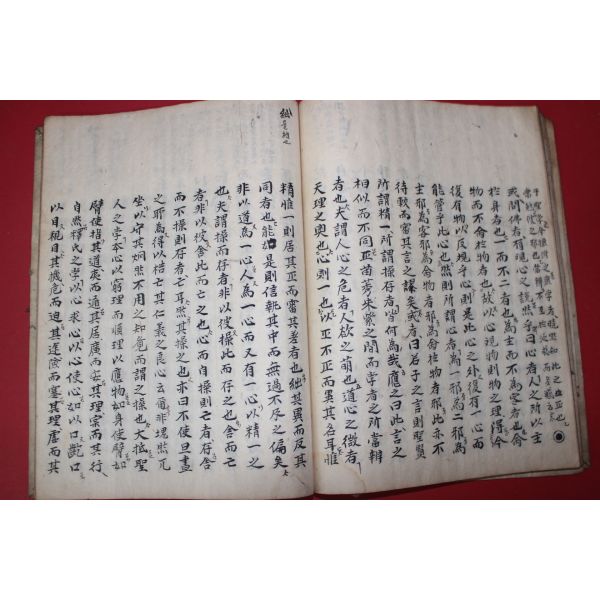 或問佛者有觀心之說然乎曰心者人之所以主
於身者也一而不二者也為主而不為客者也命
物而不命於物者也故以心觀物則物之理得今
復有物以反觀乎心則是此心之外復有一心而
能管乎此心也然則所謂心者為一邪為二邪為
主邪為客邪為命物者邪為命於物者邪此亦不
待較而審其言之謬矣或者曰若子之言則聖賢
所謂精一所謂操存者皆何為哉應之曰此言之
相似而不同正苗莠朱紫之間而學者之所當辨
者也夫謂人心之危者人欲之萌也道心之微者
天理之奧也心則一也以正不正而異其名耳惟
精惟一則居其正而審其差者也絀其異而反其
同者也能如是則信執其中而無過不及之偏矣
非以道為一心人為一心而又有一心以精一之
也夫謂操而存者非以彼操此而存之也舍而亡
者非以彼舍此而亡之也心而自操則亡者存舍
而不操則存者亡耳然其操之也亦曰不使旦晝
之所為得以梏亡其仁義之良心云爾非塊然兀
坐以守其炯然不用之知覺而謂之操也大抵聖
人之學本心以窮理而順理以應物如身使臂如
臂使指其道夷而通其居廣而安其理實而其行
自然釋氏之學以心求心以心使心如以口齕口
以目視目其機危而迫其途險而塞其理虛而其